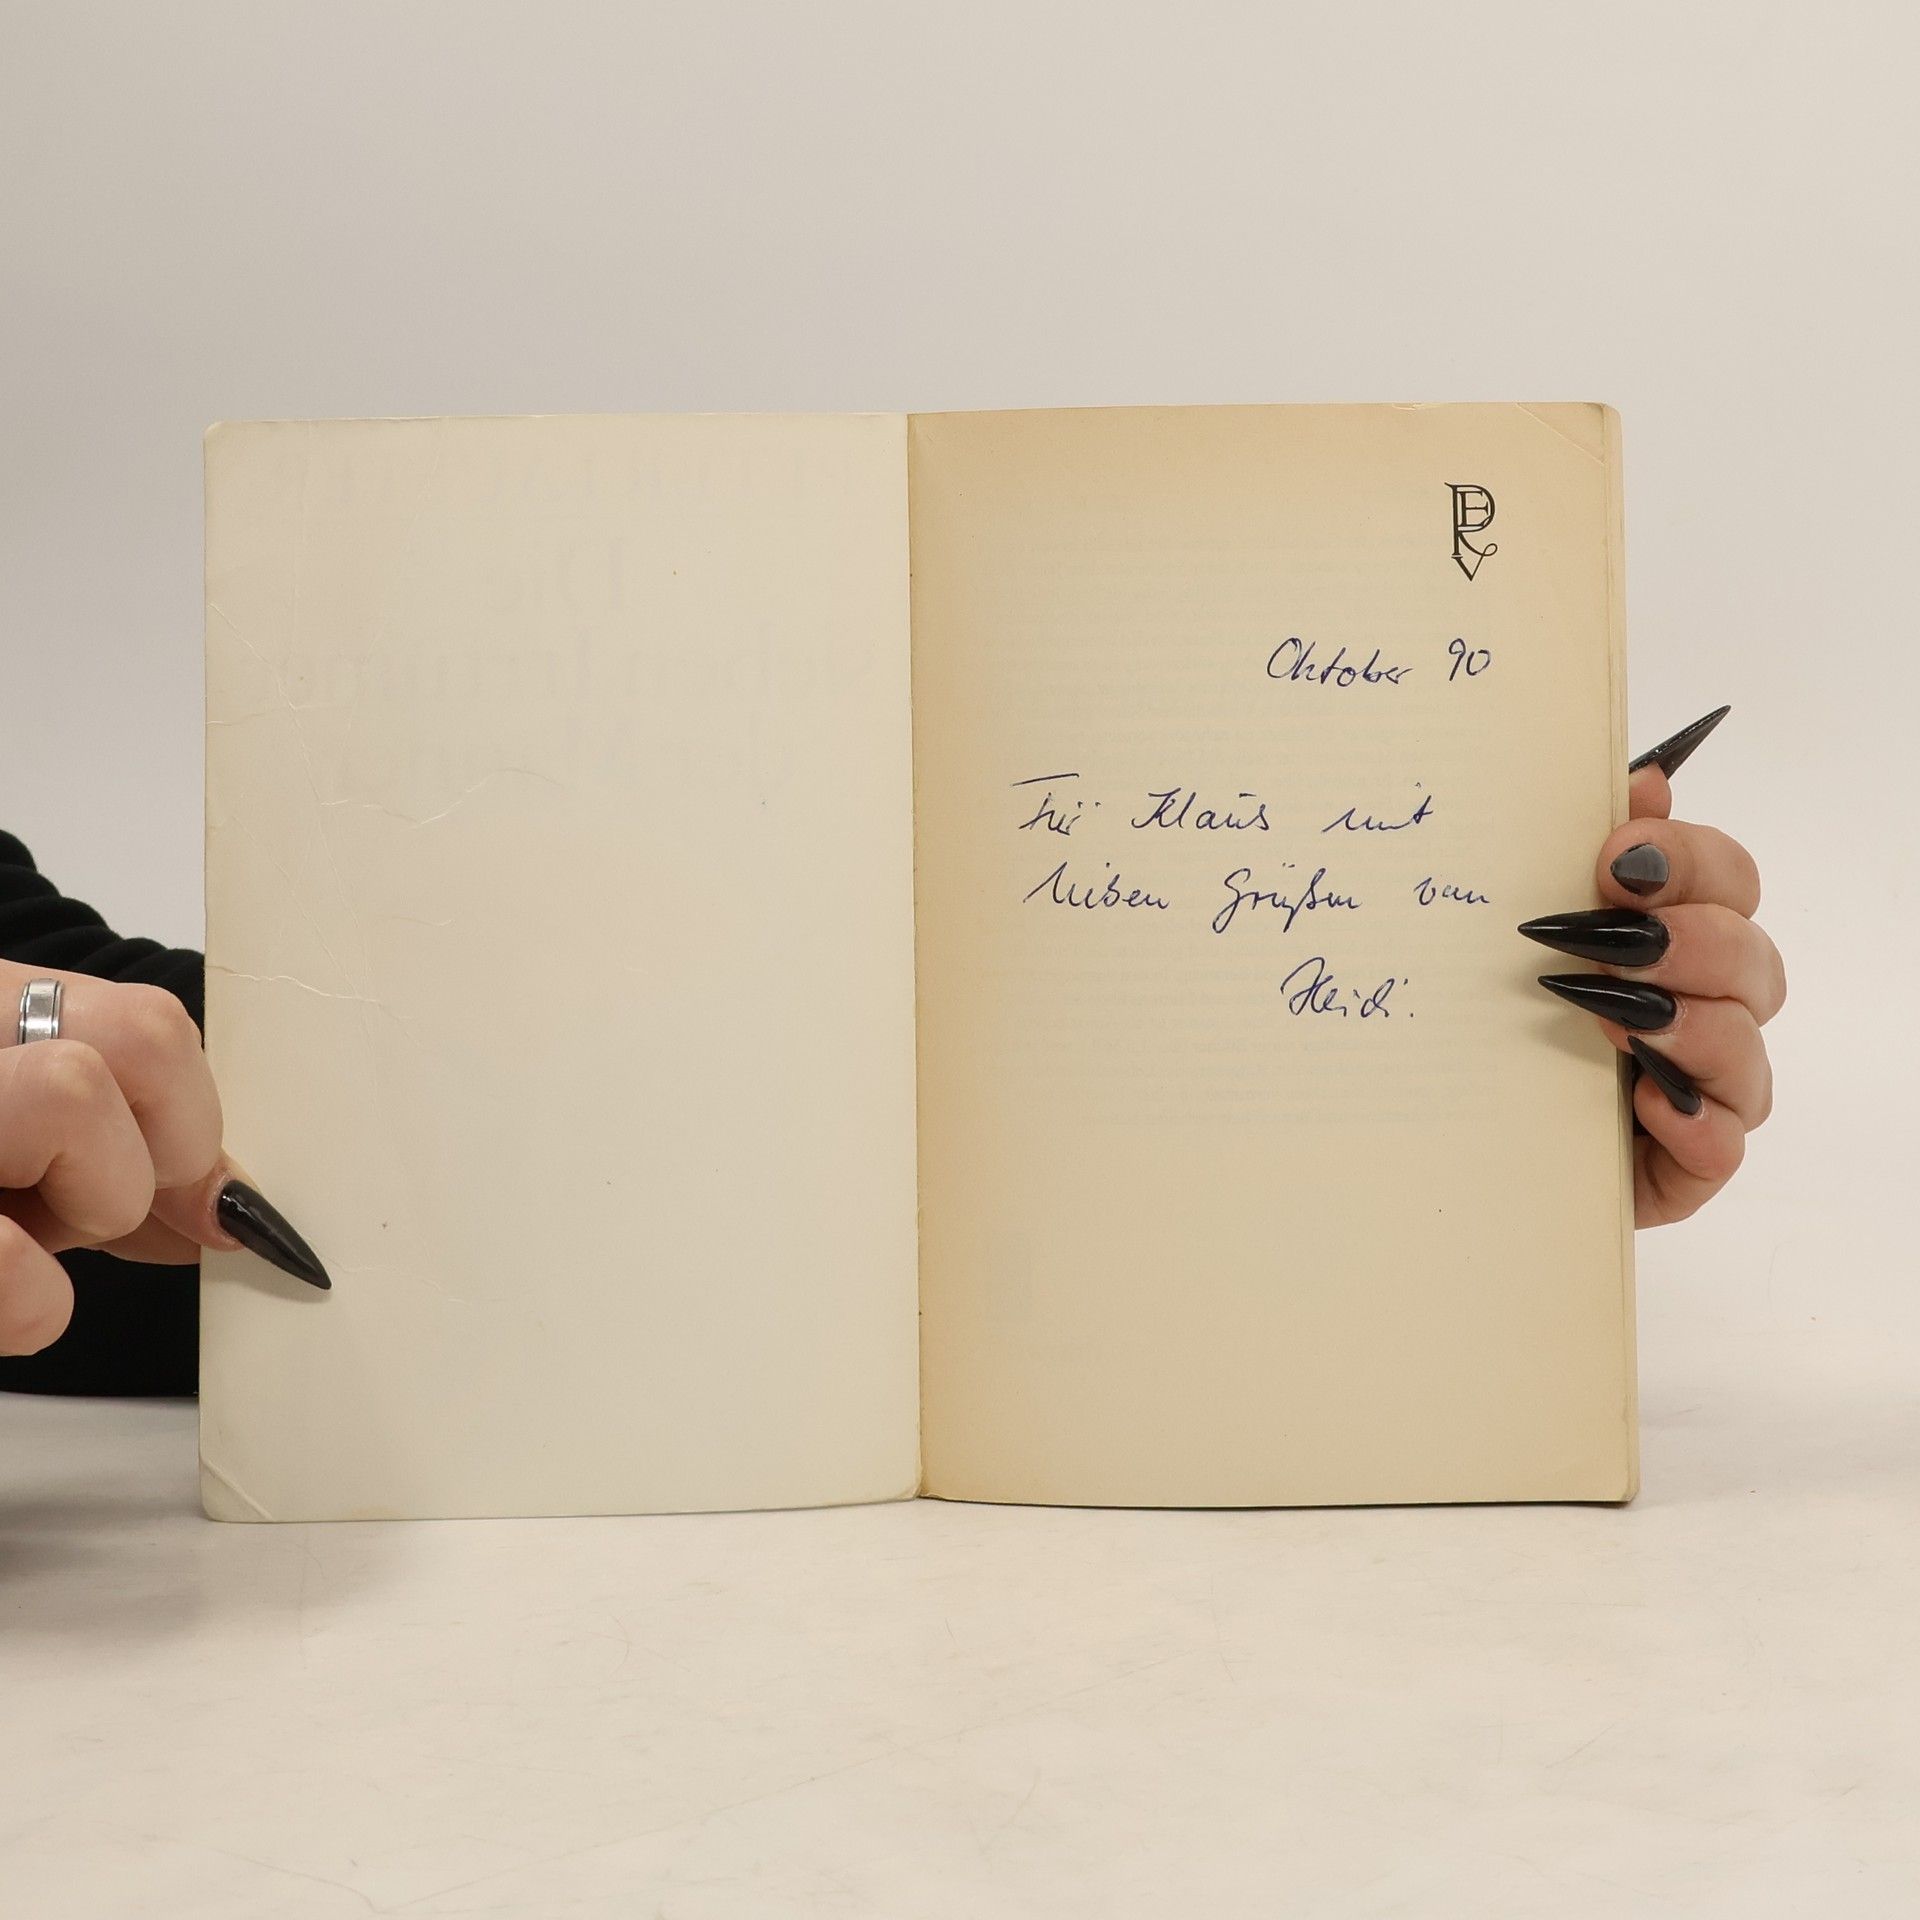 Oktober 90
Für Klaus mit
lieben Grüßen von
Heidi.